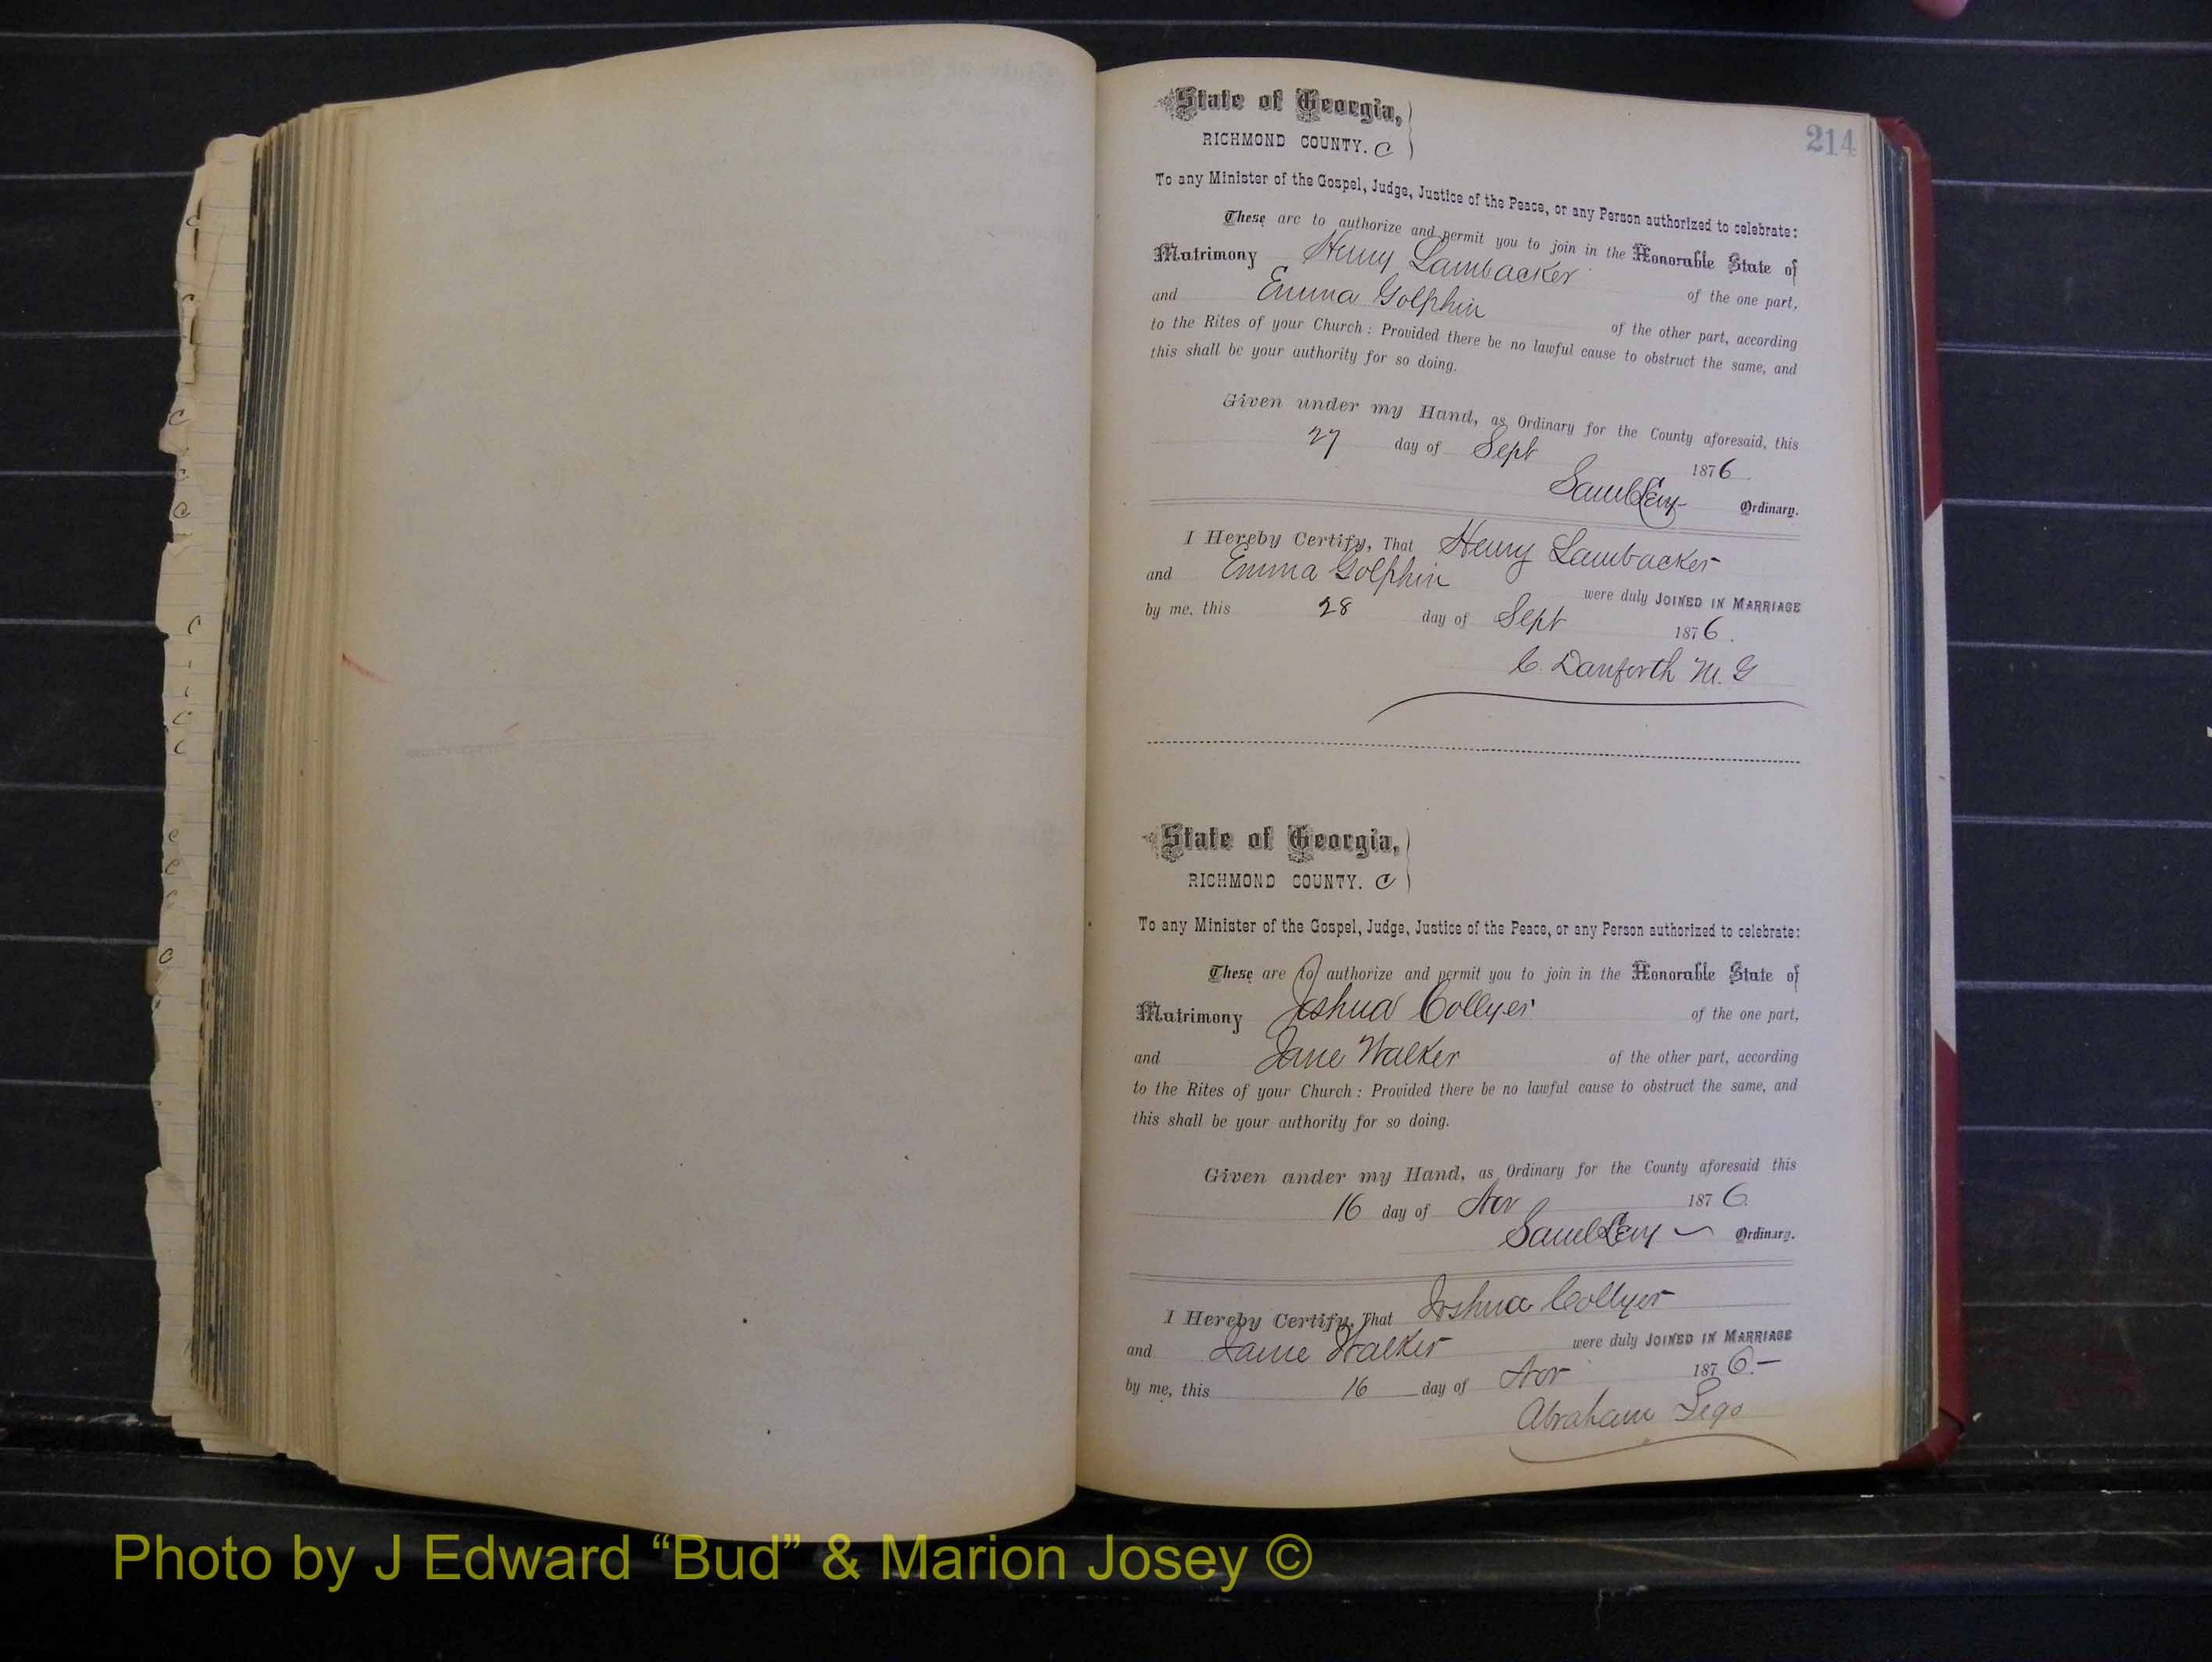 214
State of Georgia,
RICHMOND COUNTY. C
To any Minister of the Gospel, Judge, Justice of the Peace, or any Person authorized to celebrate:
These are to authorize and permit you to join in the Honorable State of
Matrimony Henry Lambacker of the one part,
and Emma Golphin of the other part, according
to the Rites of your Church: Provided there be no lawful cause to obstruct the same, and
this shall be your authority for so doing.
Given under my Hand, as Ordinary for the County aforesaid, this
27 day of Sept 1876
Saml Levy Ordinary.
I Hereby Certify, That Henry Lambacker
and Emma Golphin were duly JOINED IN MARRIAGE
by me, this 28 day of Sept 1876.
C. Danforth M. G
State of Georgia,
RICHMOND COUNTY. C
To any Minister of the Gospel, Judge, Justice of the Peace, or any Person authorized to celebrate:
These are to authorize and permit you to join in the Honorable State of
Matrimony Joshua Collyer of the one part,
and Jane Walker of the other part, according
to the Rites of your Church: Provided there be no lawful cause to obstruct the same, and
this shall be your authority for so doing.
Given under my Hand, as Ordinary for the County aforesaid this
16 day of Nov 1876.
Saml Levy Ordinary.
I Hereby Certify, That Joshua Collyer
and Jane Walker were duly JOINED IN MARRIAGE
by me, this 16 day of Nov 1876.-
Abraham Sego
Photo by J Edward “Bud” & Marion Josey ©